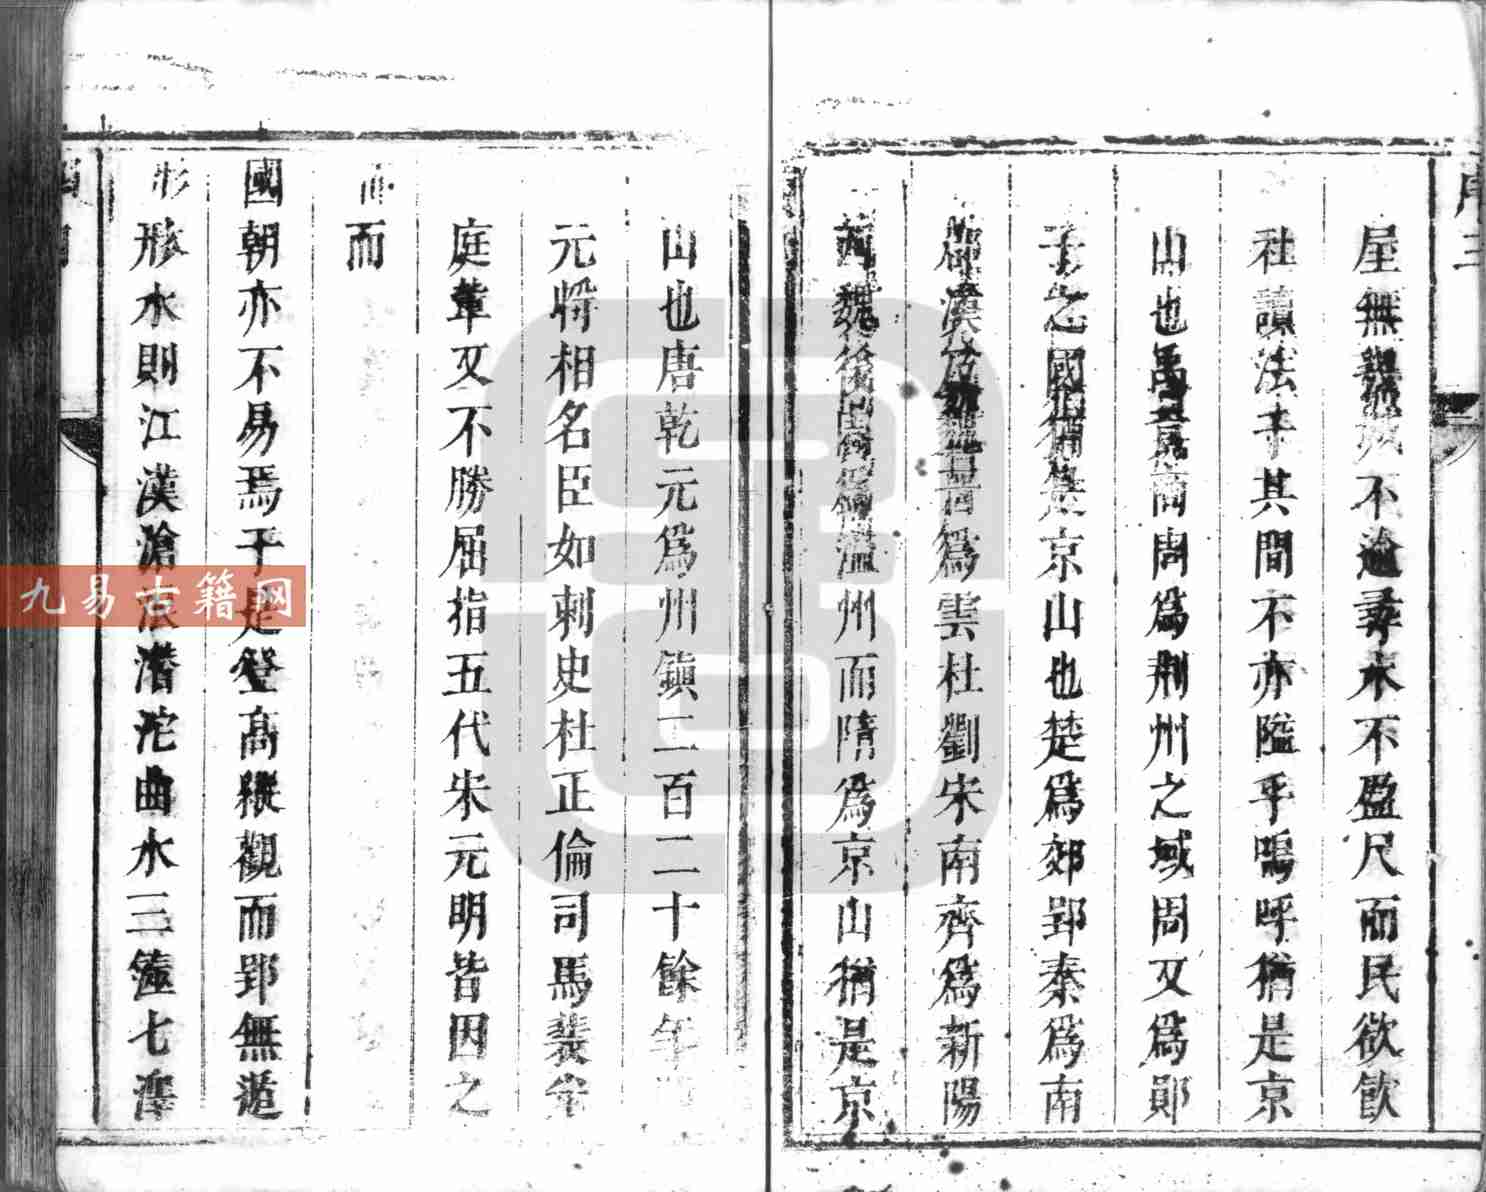 屋無譏城不逾尋水不盈尺而民欲飲
社讀法于其間不亦隘乎嗚呼猶是京
山也禹夏商周為荆州之域周又為鄖
子之國猶是京山也楚為郊郢秦為南
郡漢及魏晋為雲杜劉宋南齊為新陽
西魏後周為温州而隋為京山猶是京
山也唐乾元為州鎮二百二十餘年
元將相名臣如刺史杜正倫司馬裴
庭輩又不勝屈指五代宋元明皆因之
而
國朝亦不易焉于是登高縱觀而郢無遁
形水則江漢滄浪潛沱曲水三澨七澤
九易古籍网